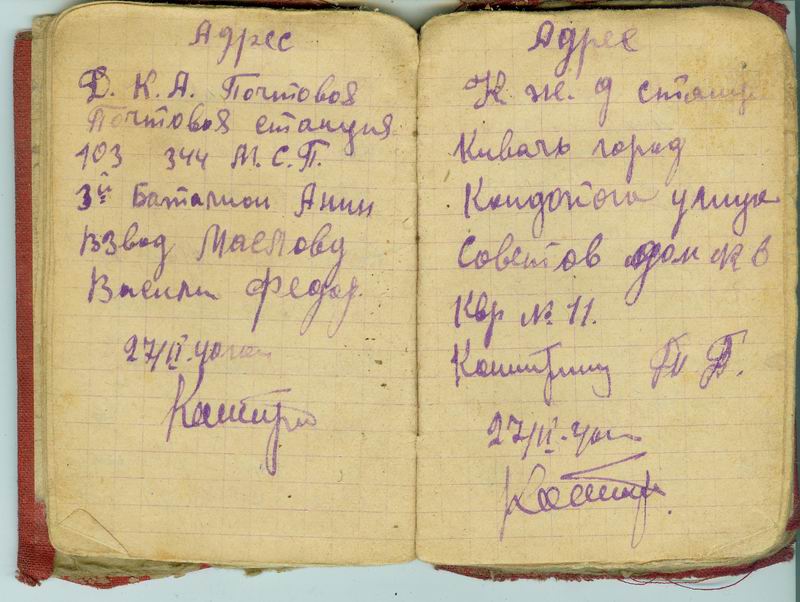 Адрес
Д. К. А. Почтовоя
Почтовоя станция
103 344 М.С.П.
3й Баталион
Взвод Маслову
Васили Федор.
27/II-40
Адрес
К ж. д станц
Кивачь город
Кандопога улица
Советов дом № 6
Квр № 11.
П.
27/II-40